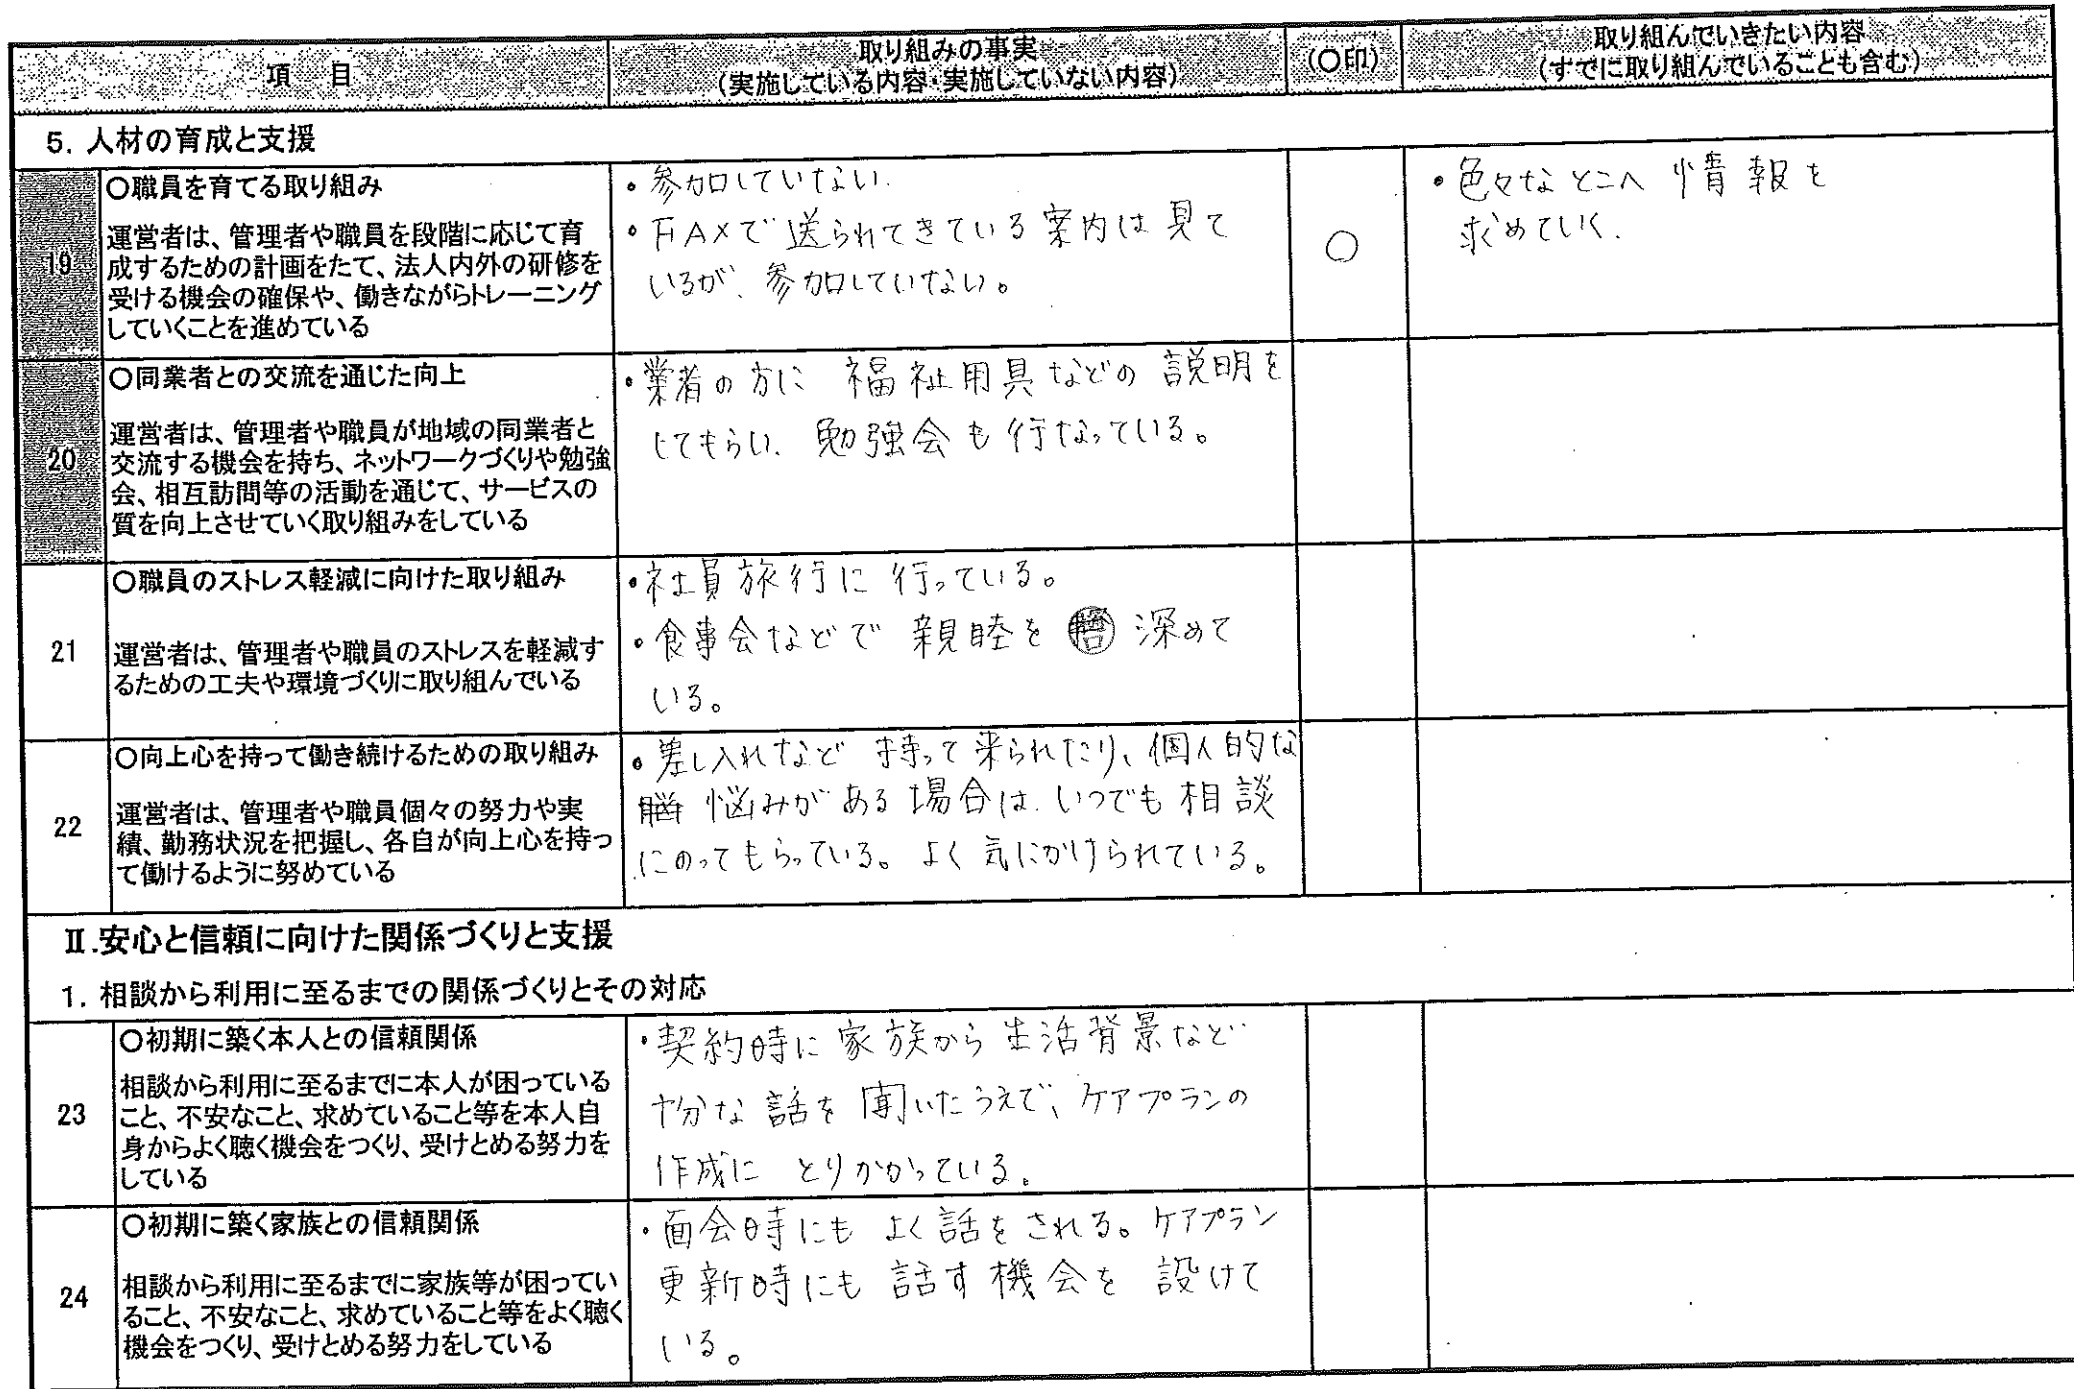 項　目
取り組みの事実
(実施している内容・実施していない内容)
(○印)
取り組んでいきたい内容
(すでに取り組んでいることも含む)
5. 人材の育成と支援
19
○職員を育てる取り組み
運営者は、管理者や職員を段階に応じて育
成するための計画をたて、法人内外の研修を
受ける機会の確保や、働きながらトレーニング
していくことを進めている
・参加していない.
・FAXで送られてきている案内は見て
いるが、参加していない。
○
・色々なとこへ 情報を
求めていく.
20
○同業者との交流を通じた向上
運営者は、管理者や職員が地域の同業者と
交流する機会を持ち、ネットワークづくりや勉強
会、相互訪問等の活動を通じて、サービスの
質を向上させていく取り組みをしている
・業者の方に 福祉用具などの 説明を
してもらい、勉強会も行なっている。
21
○職員のストレス軽減に向けた取り組み
運営者は、管理者や職員のストレスを軽減す
るための工夫や環境づくりに取り組んでいる
・社員旅行に行っている。
・食事会などで 親睦を 深めて
いる。
22
○向上心を持って働き続けるための取り組み
運営者は、管理者や職員個々の努力や実
績、勤務状況を把握し、各自が向上心を持っ
て働けるように努めている
・差し入れなど 持って来られたり、個人的な
悩みがある場合は、いつでも相談
にのってもらっている。よく気にかけられている。
Ⅱ.安心と信頼に向けた関係づくりと支援
1. 相談から利用に至るまでの関係づくりとその対応
23
○初期に築く本人との信頼関係
相談から利用に至るまでに本人が困っている
こと、不安なこと、求めていること等を本人自
身からよく聴く機会をつくり、受けとめる努力を
している
・契約時に家族から生活背景など
十分な話を聞いたうえで、ケアプランの
作成に とりかかっている。
24
○初期に築く家族との信頼関係
相談から利用に至るまでに家族等が困ってい
ること、不安なこと、求めていること等をよく聴く
機会をつくり、受けとめる努力をしている
・面会時にも よく話をされる。ケアプラン
更新時にも 話す機会を 設けて
いる。